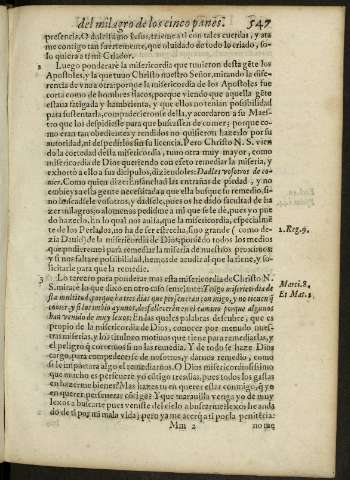 del milagro de los cinco panes. 547
presencia. O dulcissimo Iesus, traeme a ti con tales cuerdas, y ata
me contigo tan fuertemente, que oluidado de todo lo criado, so-
lo quiera a ti mi Criador.
2 Luego ponderare la misericordia que tuuieron desta gẽte los
Apostoles, y la que tuuo Christo nuestro Señor, mirando la dife-
rencia de vna a otra: porque la misericordia de los Apostoles fue
corta como de hombres flacos, porque viendo que aquella gẽte
estaua fatigada y hambrienta, y que ellos no tenian possibilidad
para sustentarla, compadecieronse della, y acordaron a su Maes-
tro que los despidiesse para que buscassen de comer; porque co-
mo eran tan obedientes y rendidos no quisieron hazerlo por su
autoridad, ni despedirlos sin su licencia. Pero Christo N. S. vien
do la cortedad desta misericordia, tuuo otra muy mayor, como
misericordia de Dios queriendo con efeto remediar la miseria, y
exhortò a ello a sus dicipulos, diziendoles: Dadles vosotros de co-
mer. Como quien dize: Ensanchad las entrañas de piedad, y no
embieys a esta gente necessitada a que ella busque su remedio, si-
no buscadsele vosotros, y dadsele, pues os he dado facultad de ha
zer milagros; o alomenos pedidme a mi que se le dè, pues yo pue
do hazerlo. En lo qual nos auisa, que la misericordia, especialmẽ
te de los Perlados, no ha de ser estrecha, sino grande (como de-
zia Dauid) de la misericordia de Dios, poniẽdo todos los medios 1. Reg. 9.
que pudieremos para remediar la miseria de nuestros proximos:
y si nos faltare possibilidad, hemos de acudir al que la tiene, y so-
licitarle para que la remedie.
3 Lo tercero para ponderar mas esta misericordia de Christo N.
S. mirarè lo que dixo en otro caso semejante: Tengo misericordia de Marci. 8.
sta multitud, porque ha tres dias que perseueran conmigo, y no tienen q̃ Et Mat.
comer, y si los embio ayunos, desfalleceràn en el camino porque algunos
han venido de muy lexos. En las quales palabras descubre, que es
propio de la misericordia de Dios, conocer por menudo nues-
tras miserias, y los titulos o motiuos que tiene para remediarlas, y
el peligro q̃ corremos si no las remedia. Y de todo se haze Dios
cargo, para compadecerse de nosotros, y darnos remedio, como
si le importara algo el remediarnos. O Dios misericordiosissimo
que mucho es perseuere yo cõtigo tres dias, pues todos los gastas
en hazerme bienes? Mas hazes tu en querer estar conmigo, q̃ yo
en querer perseuerar cõtigo? Y que marauilla venga yo de muy
lexos a buscarte pues veniste del cielo a buscarme? lexos he anda
do de ti por mi mala vida; pero ya me acerq̃ a ti por la penitẽcia:
Mm 2 no me